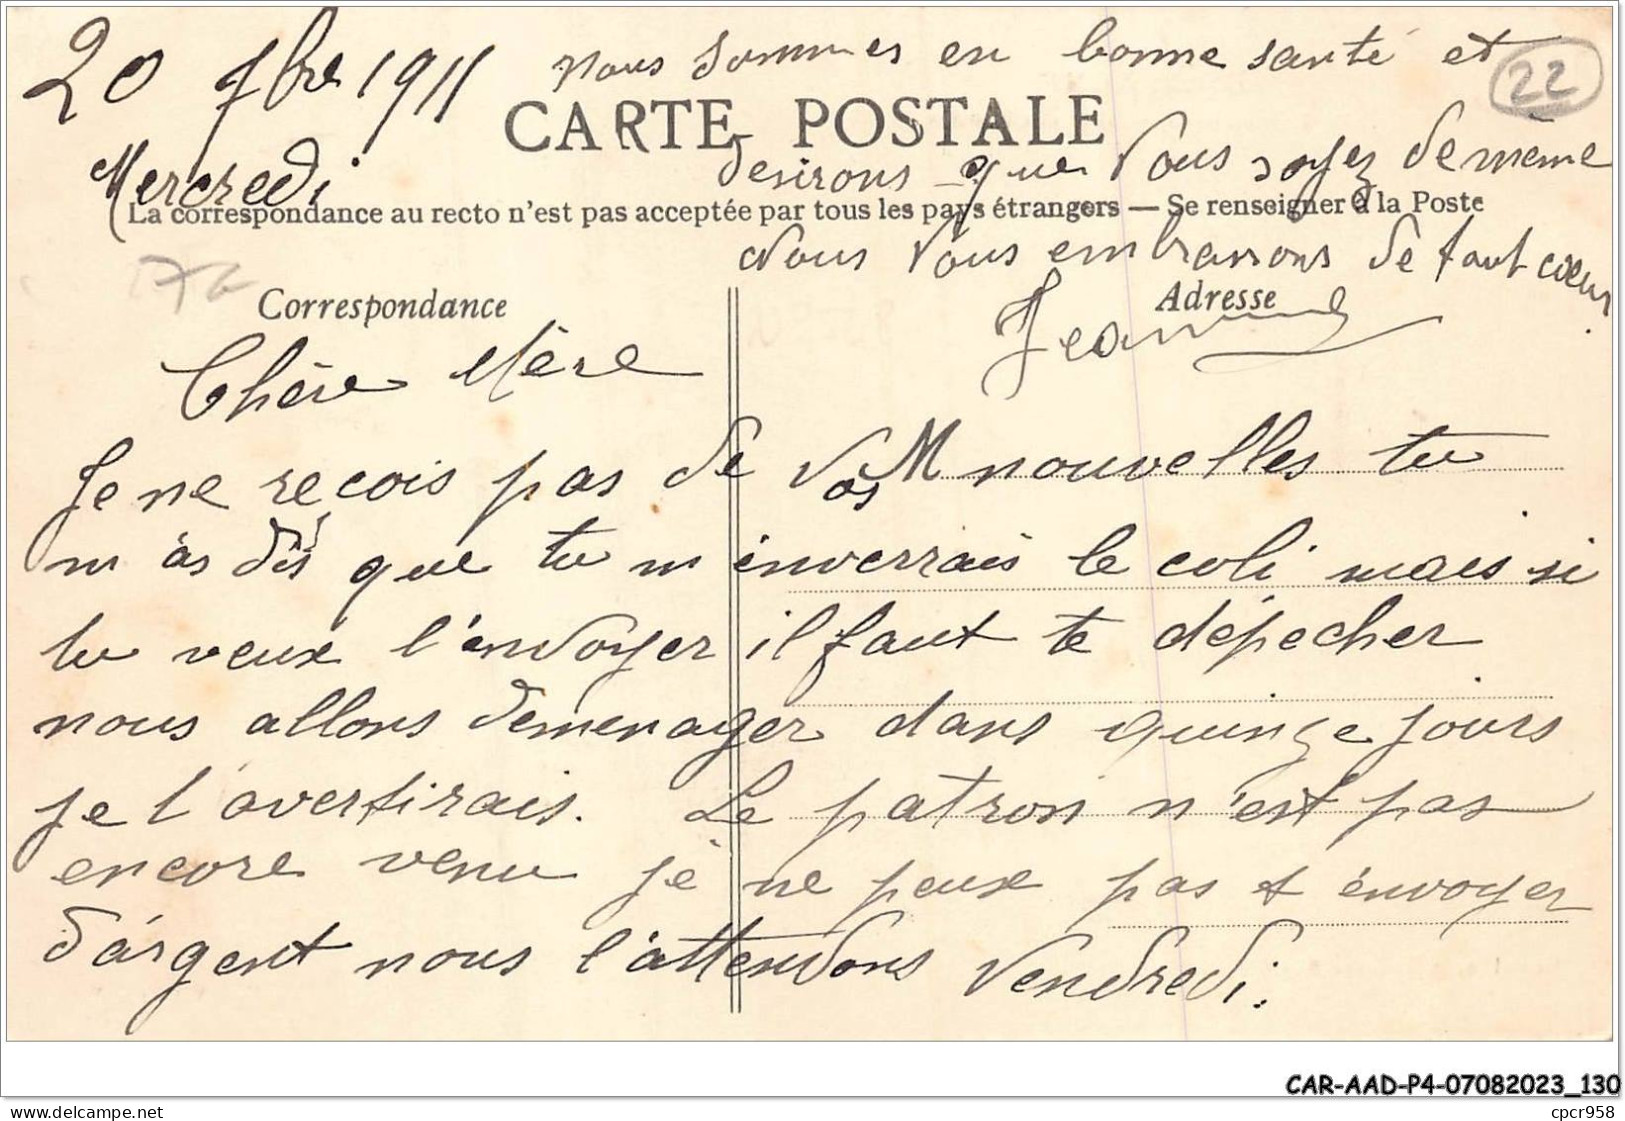 20 7bre 1911
Mercredi
CARTE POSTALE
La correspondance au recto n'est pas acceptée par tous les pays étrangers — Se renseigner à la Poste
22
Correspondance
Adresse
Chère Mère
Je ne reçois pas de vos nouvelles tu
m'as dis que tu m'inverrais le coli mais si
tu veux l'envoyer il faut te dépecher
nous allons demenager dans quinze jours
je t'avertirais. Le patron n'est pas
encore venu je ne peux pas t'envoyer
d'argent nous l'attendons Vendredi.
nous sommes en bonne santé et
desirons que vous soyez de même
Nous vous embrassons de tout coeur
Jeanne
CAR-AAD-P4-07082023_130
www.delcampe.net
cpcr958